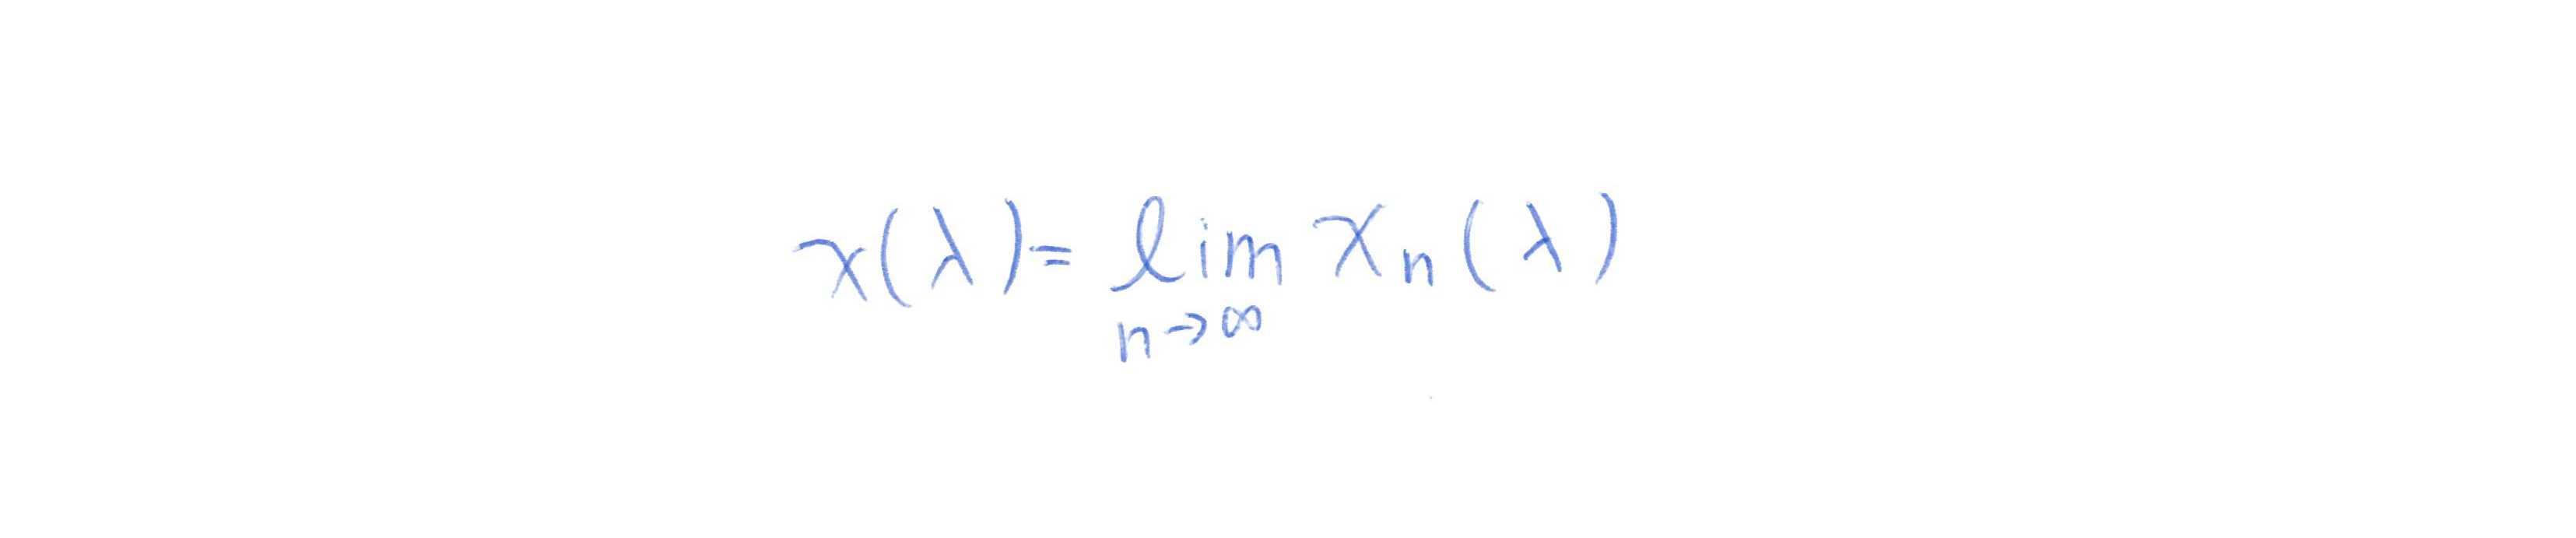 x(λ) = lim_{n→∞} x_n(λ)